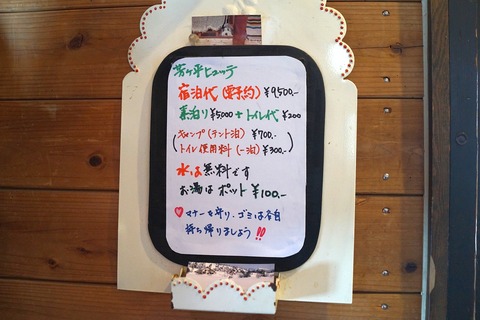 芳ヶ平ヒュッテ
宿泊代(要予約)¥9,500.-
素泊り¥5000+トイレ代¥200
キャンプ(テント泊)¥700.-
トイレ使用料(一泊)¥300.-
水は無料です
お湯はポット¥100.-
♡マナーを守り、ゴミは各自
持ち帰りましょう!!